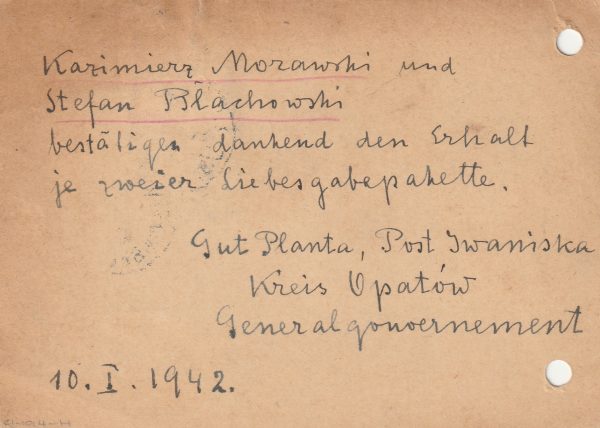 Kazimierz Morawski und
Stefan Błachowski
bestätigen dankend den Erhalt
je zweier Liebesgabepakette.
Gut Planta, Post Iwaniska
Kreis Opatów
Generalgouvernement
10. I. 1942.